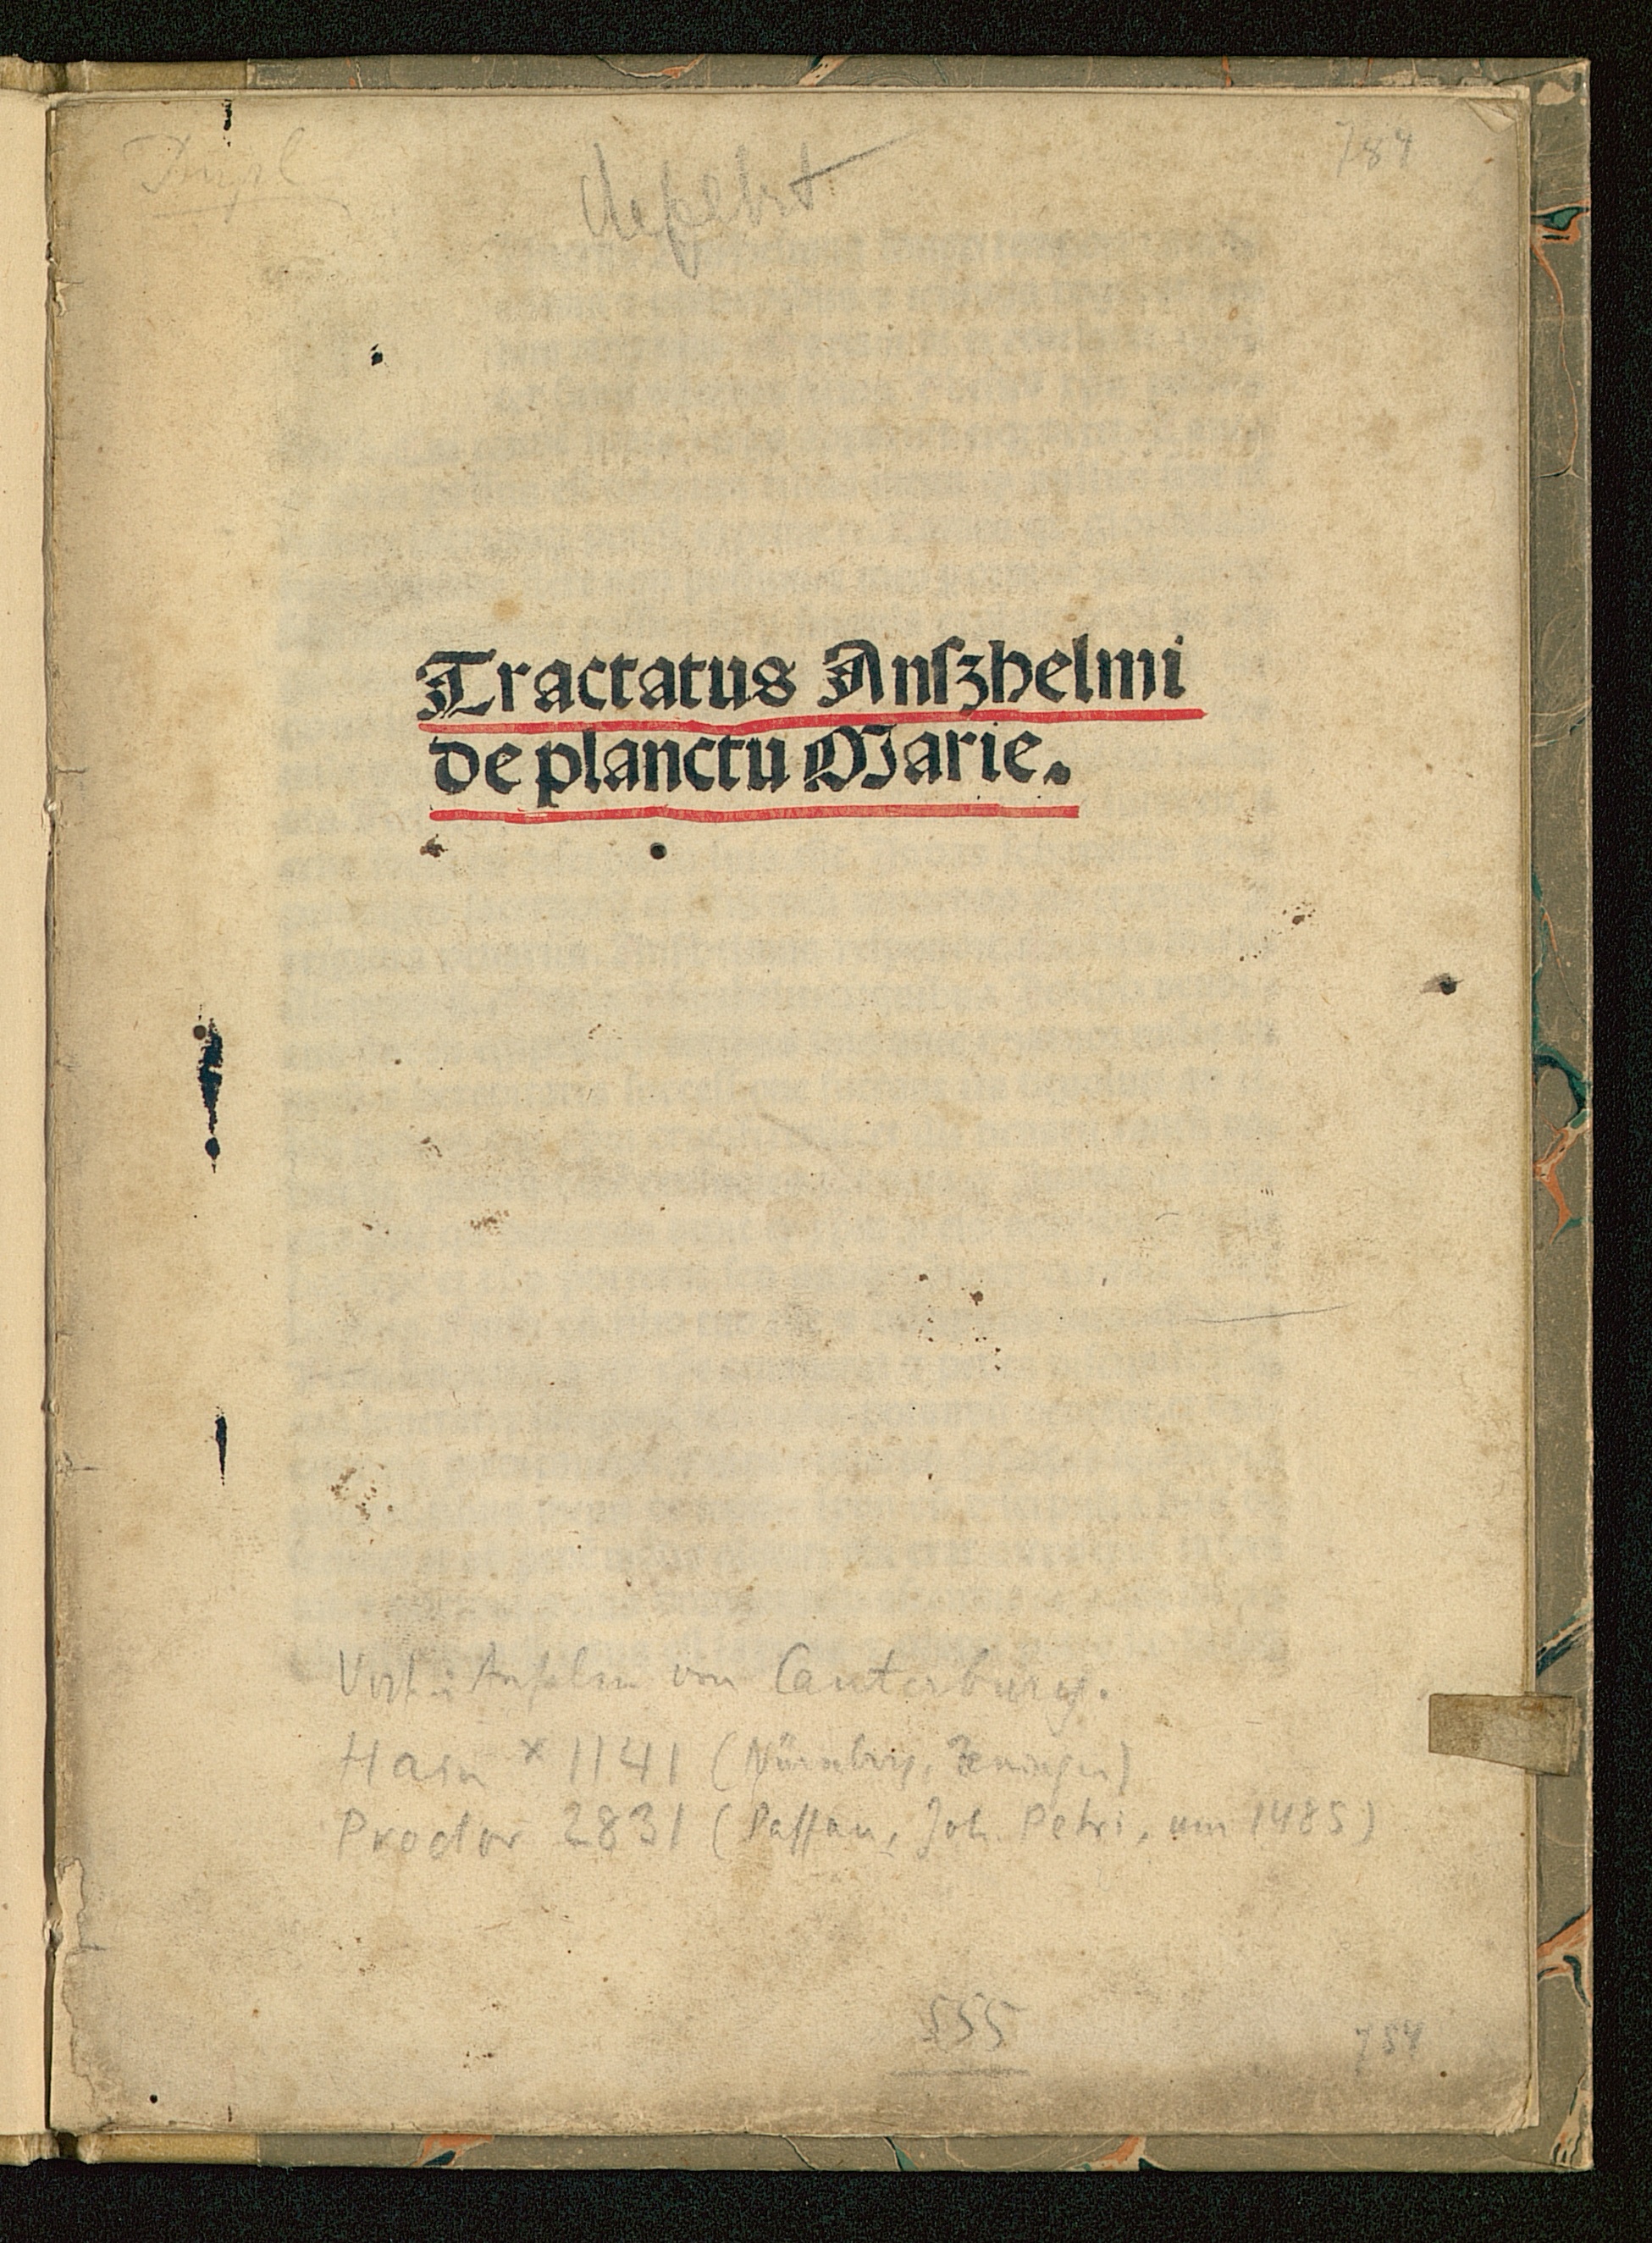 Dupl
defekt
784
Tractatus Anſzhelmi
de planctu Marie.
Verf.: Anſelm von Canterbury.
Hain × 1141 (Nürnberg, Zeninger)
Proctor 2831 (Paſſau, Joh. Petri, um 1485)
555
784